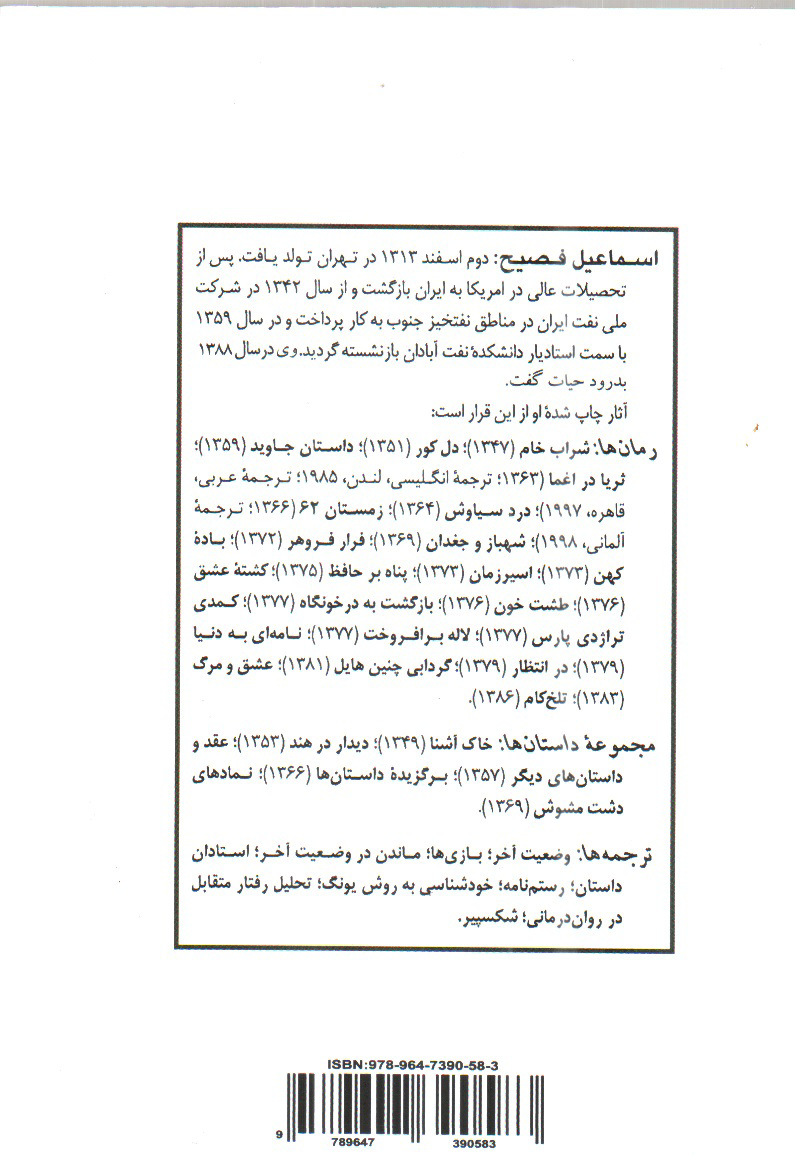 اسماعیل فصیح: دوم اسفند ۱۳۱۳ در تهران تولد یافت. پس از
تحصیلات عالی در امریکا به ایران بازگشت و از سال ۱۳۴۲ در شرکت
ملی نفت ایران در مناطق نفتخیز جنوب به کار پرداخت و در سال ۱۳۵۹
با سمت استادیار دانشکدهٔ نفت آبادان بازنشسته گردید. وی در سال ۱۳۸۸
بدرود حیات گفت.
آثار چاپ شدهٔ او از این قرار است:
رمان‌ها: شراب خام (۱۳۴۷)؛ دل کور (۱۳۵۱)؛ داستان جاوید (۱۳۵۹)؛
ثریا در اغما (۱۳۶۳؛ ترجمهٔ انگلیسی، لندن، ۱۹۸۵؛ ترجمهٔ عربی،
قاهره، ۱۹۹۷)؛ درد سیاوش (۱۳۶۴)؛ زمستان ۶۲ (۱۳۶۶؛ ترجمهٔ
آلمانی، ۱۹۹۸)؛ شهباز و جغدان (۱۳۶۹)؛ فرار فروهر (۱۳۷۲)؛ بادهٔ
کهن (۱۳۷۳)؛ اسیر زمان (۱۳۷۳)؛ پناه بر حافظ (۱۳۷۵)؛ کشتهٔ عشق
(۱۳۷۶)؛ طشت خون (۱۳۷۶)؛ بازگشت به درخونگاه (۱۳۷۷)؛ کمدی
تراژدی پارس (۱۳۷۷)؛ لاله برافروخت (۱۳۷۷)؛ نامه‌ای به دنیا
(۱۳۷۹)؛ در انتظار (۱۳۷۹)؛ گردابی چنین هایل (۱۳۸۱)؛ عشق و مرگ
(۱۳۸۳)؛ تلخ‌کام (۱۳۸۶).
مجموعهٔ داستان‌ها: خاک آشنا (۱۳۴۹)؛ دیدار در هند (۱۳۵۳)؛ عقد و
داستان‌های دیگر (۱۳۵۷)؛ برگزیدهٔ داستان‌ها (۱۳۶۶)؛ نمادهای
دشت مشوش (۱۳۶۹).
ترجمه‌ها: وضعیت آخر؛ بازی‌ها؛ ماندن در وضعیت آخر؛ استادان
داستان؛ رستم‌نامه؛ خودشناسی به روش یونگ؛ تحلیل رفتار متقابل
در روان‌درمانی؛ شکسپیر.
ISBN:978-964-7390-58-3
9 789647 390583